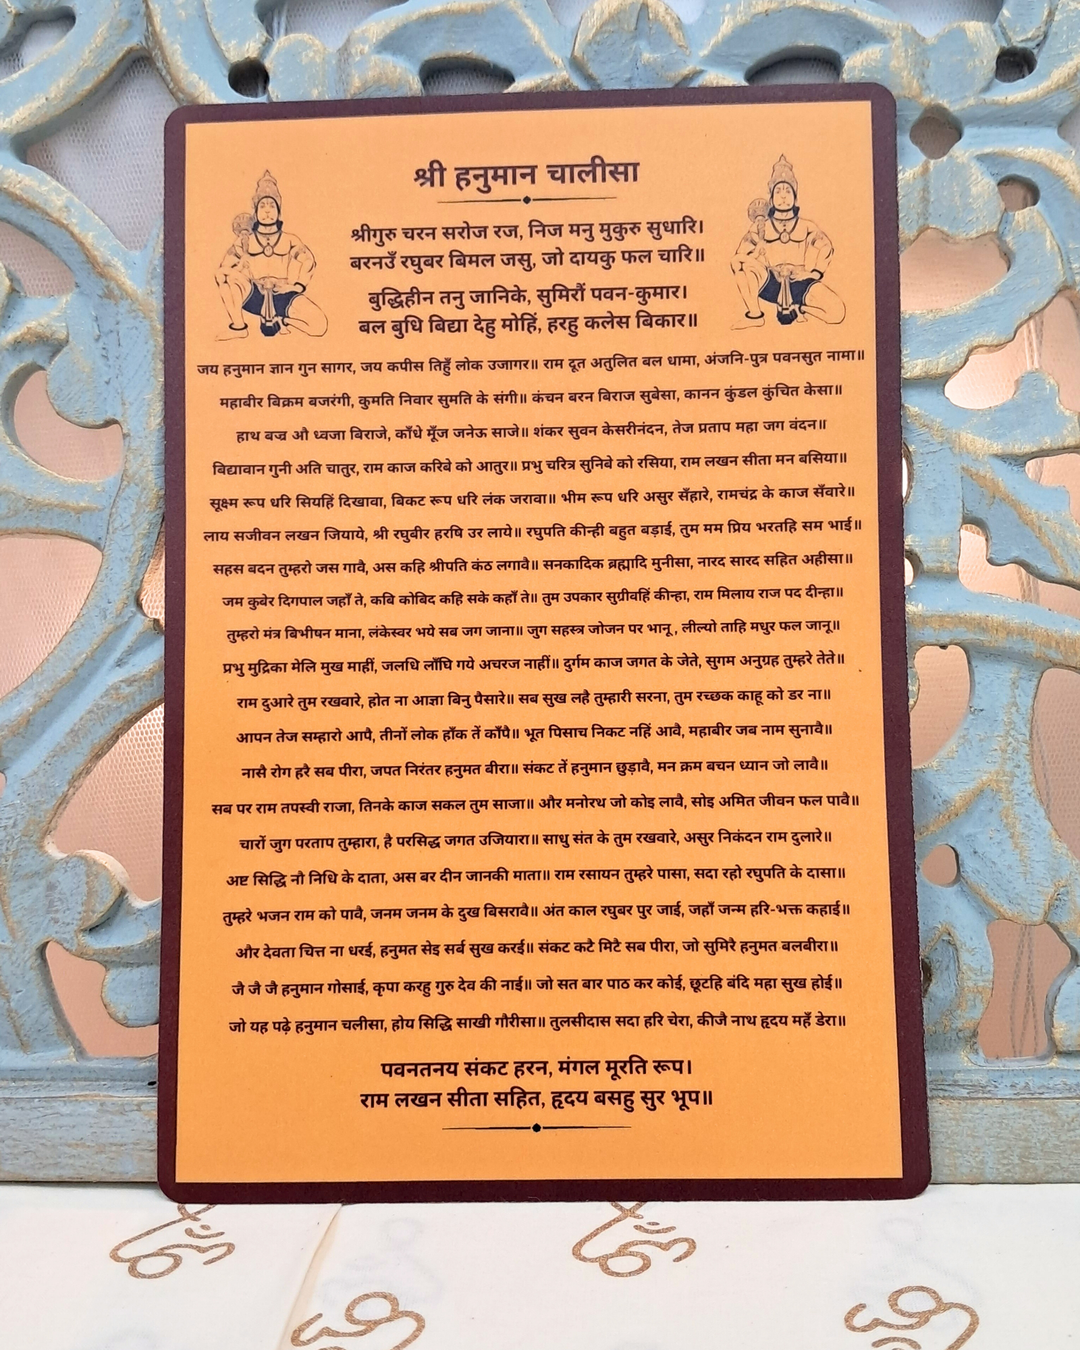 श्री हनुमान चालीसा
श्रीगुरु चरन सरोज रज, निज मनु मुकुरु सुधारि।
बरनउँ रघुबर बिमल जसु, जो दायकु फल चारि॥
बुद्धिहीन तनु जानिके, सुमिरौं पवन-कुमार।
बल बुधि बिद्या देहु मोहिं, हरहु कलेस बिकार॥
जय हनुमान ज्ञान गुन सागर, जय कपीस तिहुँ लोक उजागर॥ राम दूत अतुलित बल धामा, अंजनि-पुत्र पवनसुत नामा॥
महाबीर बिक्रम बजरंगी, कुमति निवार सुमति के संगी॥ कंचन बरन बिराज सुबेसा, कानन कुंडल कुंचित केसा॥
हाथ बज्र औ ध्वजा बिराजे, काँधे मूँज जनेऊ साजे॥ शंकर सुवन केसरीनंदन, तेज प्रताप महा जग वंदन॥
बिद्यावान गुनी अति चातुर, राम काज करिबे को आतुर॥ प्रभु चरित्र सुनिबे को रसिया, राम लखन सीता मन बसिया॥
सूक्ष्म रूप धरि सियहिं दिखावा, बिकट रूप धरि लंक जरावा॥ भीम रूप धरि असुर सँहारे, रामचंद्र के काज सँवारे॥
लाय सजीवन लखन जियाये, श्री रघुबीर हरषि उर लाये॥ रघुपति कीन्ही बहुत बड़ाई, तुम मम प्रिय भरतहि सम भाई॥
सहस बदन तुम्हरो जस गावै, अस कहि श्रीपति कंठ लगावै॥ सनकादिक ब्रह्मादि मुनीसा, नारद सारद सहित अहीसा॥
जम कुबेर दिगपाल जहाँ ते, कबि कोबिद कहि सके कहाँ ते॥ तुम उपकार सुग्रीवहिं कीन्हा, राम मिलाय राज पद दीन्हा॥
तुम्हरो मंत्र बिभीषन माना, लंकेस्वर भये सब जग जाना॥ जुग सहस्त्र जोजन पर भानू, लील्यो ताहि मधुर फल जानू॥
प्रभु मुद्रिका मेलि मुख माहीं, जलधि लाँघि गये अचरज नाहीं॥ दुर्गम काज जगत के जेते, सुगम अनुग्रह तुम्हरे तेते॥
राम दुआरे तुम रखवारे, होत ना आज्ञा बिनु पैसारे॥ सब सुख लहै तुम्हारी सरना, तुम रच्छक काहू को डर ना॥
आपन तेज सम्हारो आपै, तीनों लोक हाँक तें काँपै॥ भूत पिसाच निकट नहिं आवै, महाबीर जब नाम सुनावै॥
नासै रोग हरै सब पीरा, जपत निरंतर हनुमत बीरा॥ संकट तें हनुमान छुड़ावै, मन क्रम बचन ध्यान जो लावै॥
सब पर राम तपस्वी राजा, तिनके काज सकल तुम साजा॥ और मनोरथ जो कोइ लावै, सोइ अमित जीवन फल पावै॥
चारों जुग परताप तुम्हारा, है परसिद्ध जगत उजियारा॥ साधु संत के तुम रखवारे, असुर निकंदन राम दुलारे॥
अष्ट सिद्धि नौ निधि के दाता, अस बर दीन जानकी माता॥ राम रसायन तुम्हरे पासा, सदा रहो रघुपति के दासा॥
तुम्हरे भजन राम को पावै, जनम जनम के दुख बिसरावै॥ अंत काल रघुबर पुर जाई, जहाँ जन्म हरि-भक्त कहाई॥
और देवता चित्त ना धरई, हनुमत सेइ सर्ब सुख करई॥ संकट कटै मिटै सब पीरा, जो सुमिरै हनुमत बलबीरा॥
जै जै जै हनुमान गोसाई, कृपा करहु गुरु देव की नाई॥ जो सत बार पाठ कर कोई, छूटहि बंदि महा सुख होई॥
जो यह पढ़े हनुमान चलीसा, होय सिद्धि साखी गौरीसा॥ तुलसीदास सदा हरि चेरा, कीजै नाथ हृदय महँ डेरा॥
पवनतनय संकट हरन, मंगल मूरति रूप।
राम लखन सीता सहित, हृदय बसहु सुर भूप॥